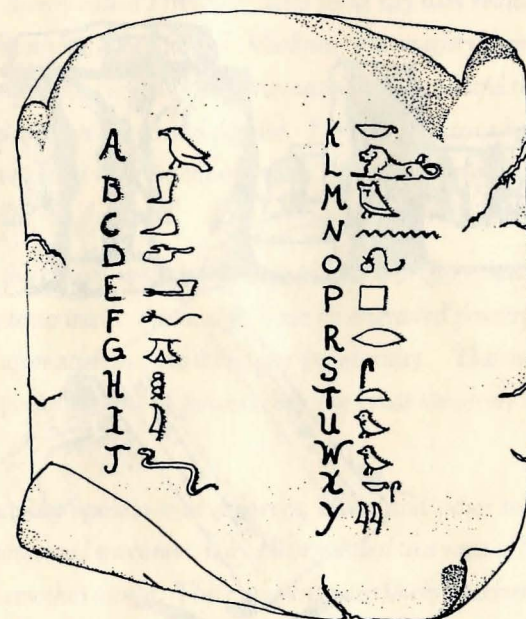 A
B
C
D
E
F
G
H
I
J
K
L
M
N
O
P
R
S
T
U
W
X
Y